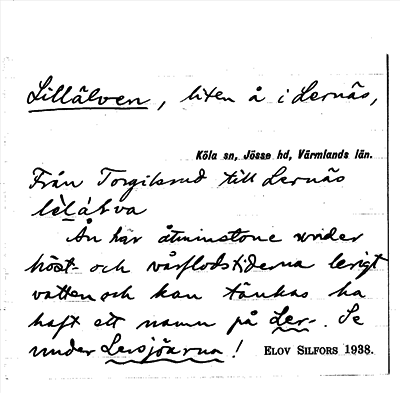 Lillälven, liten å i Lernäs,
Köla sn, Jösse hd, Värmlands län.
Från Torgilsrud till Lernäs
Ån har åtminstone under
höst- och vårflodstiderna lerigt
vatten och kan tänkas ha
haft ett namn på Ler-. Se
under Lersjöarna! ELOV SILFORS 1938.